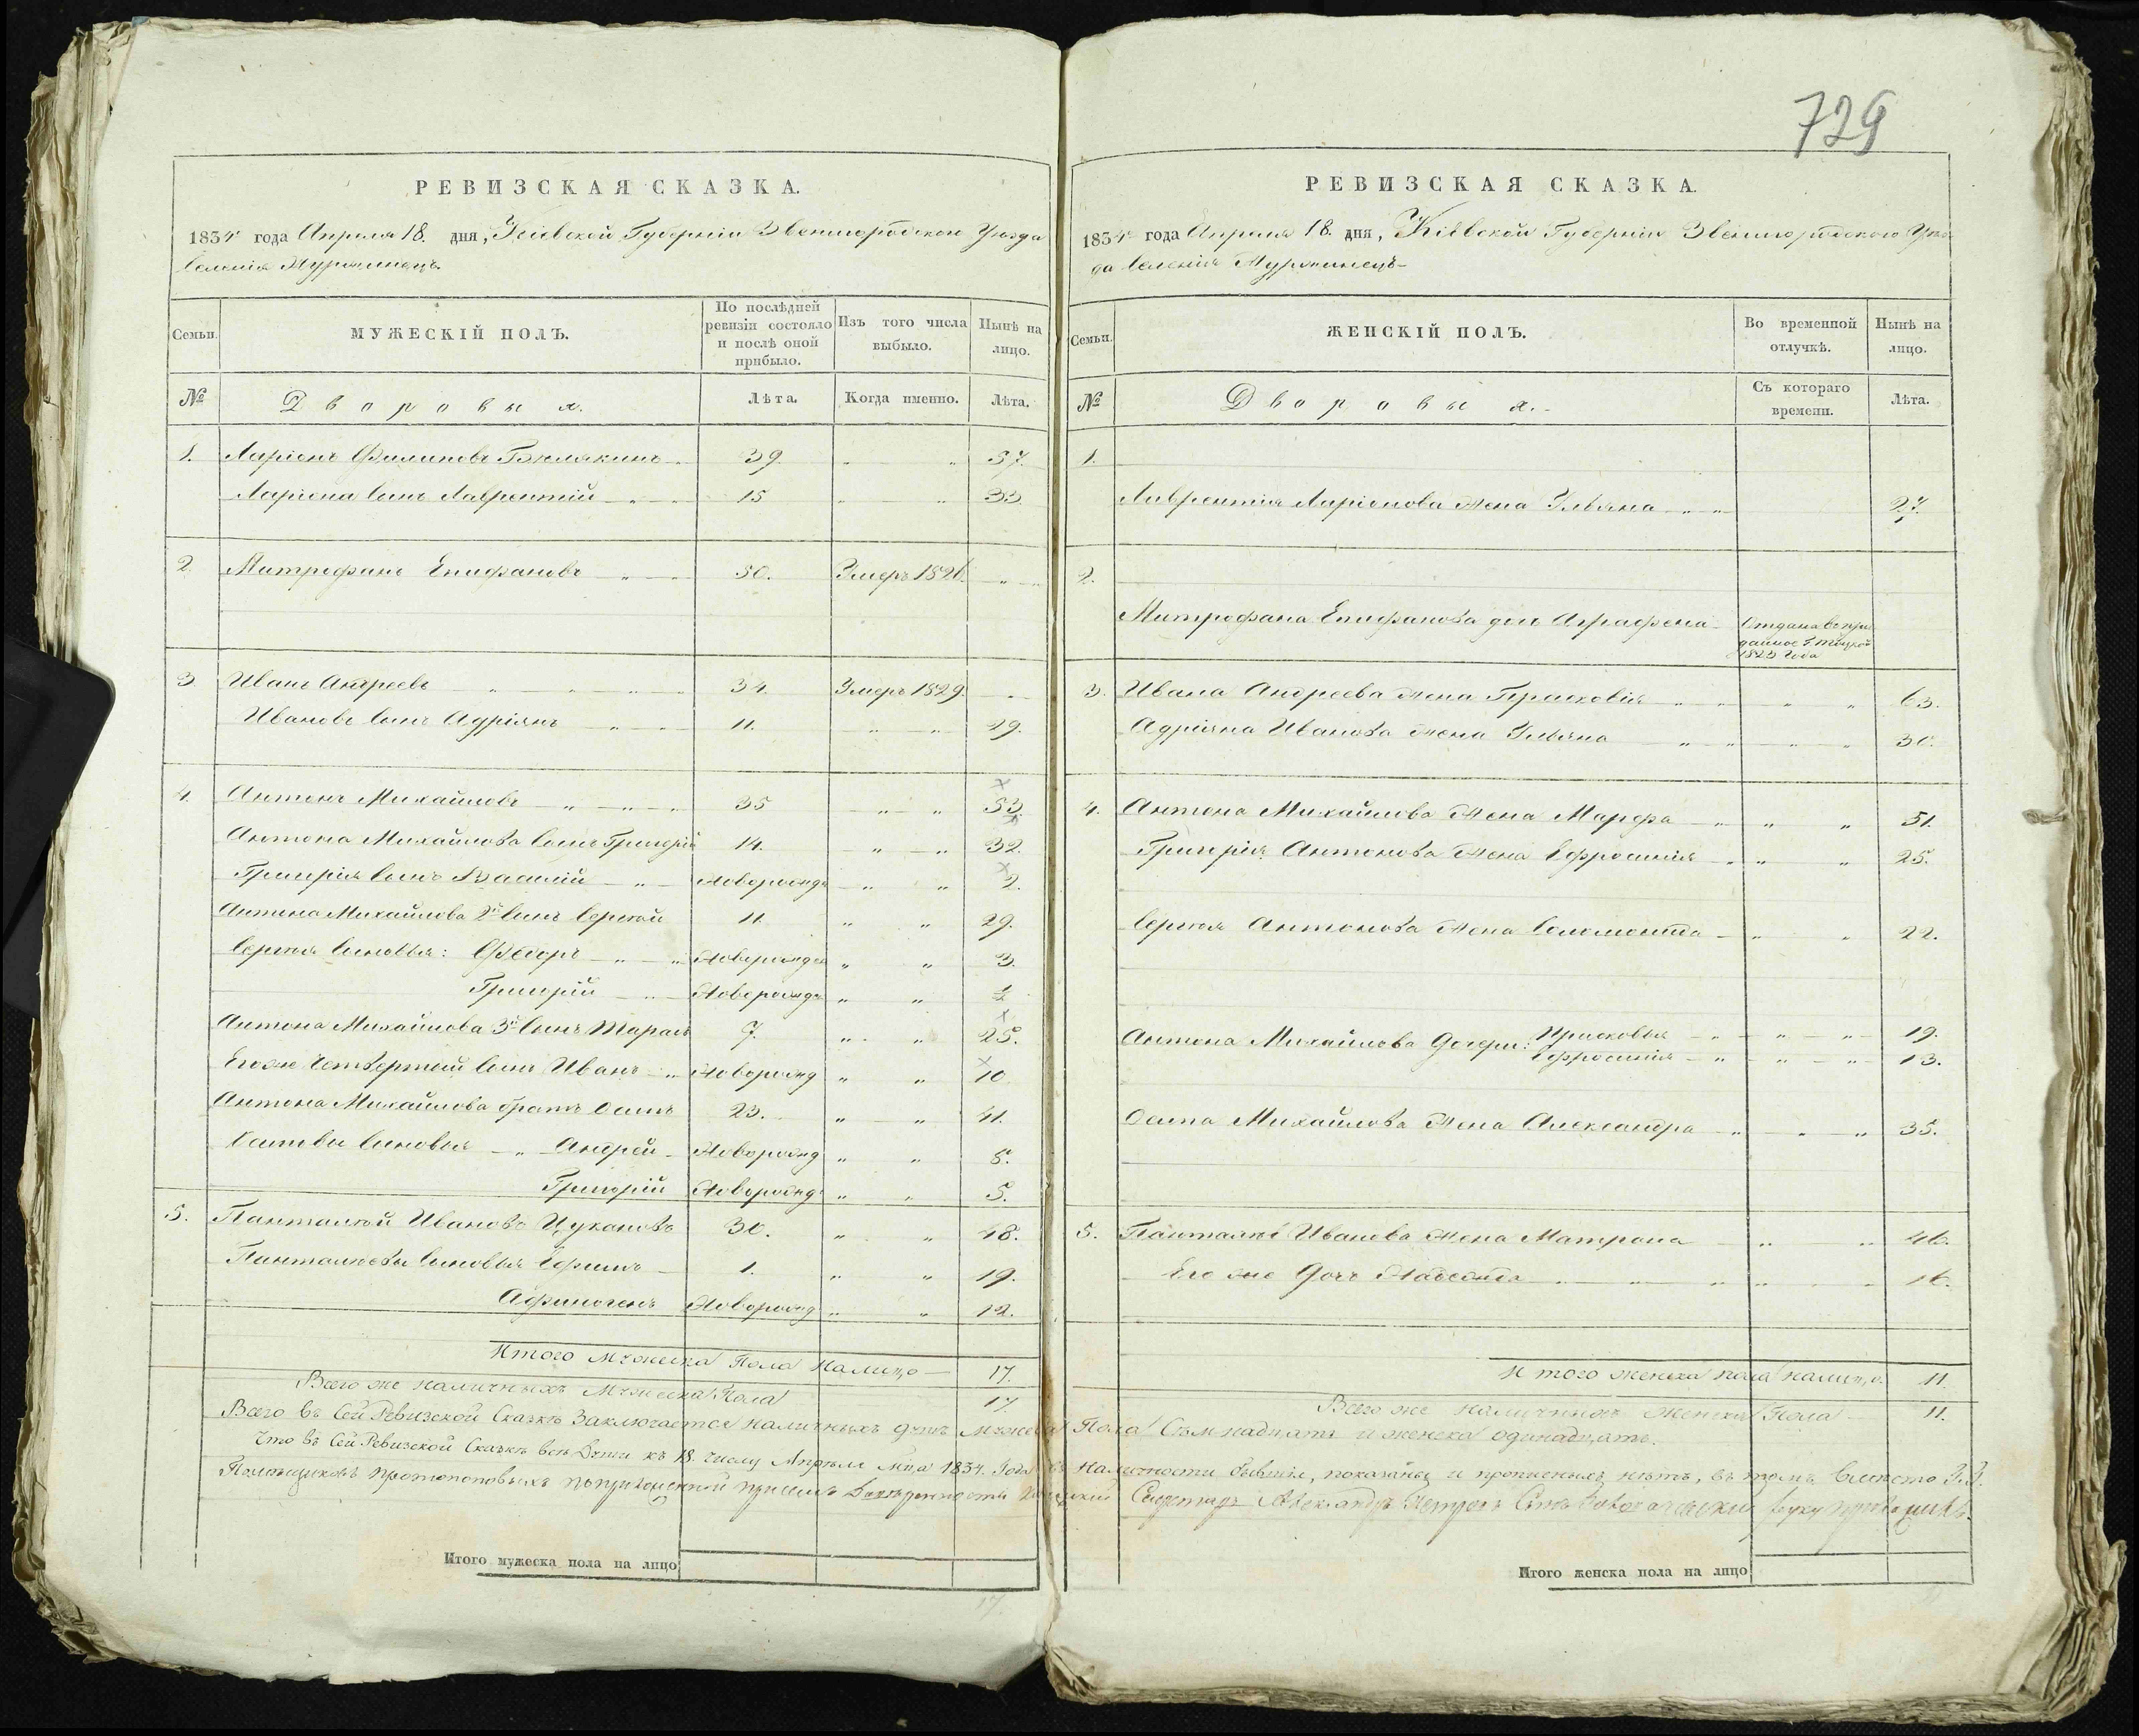 729
РЕВИЗСКАЯ СКАЗКА.
1834 года Апреля 18. дня, Кіевской Губерніи Звенигородского Уезда
Селенія Мурзинецъ.
Семьи.
МУЖЕСКІЙ ПОЛЪ.
По послѣдней ревизіи состояло и послѣ оной прибыло.
Изъ того числа выбыло.
Нынѣ на лицо.
№
Дворовыя.
Лѣта.
Когда именно.
Лѣта.
1. Ларіонъ Филиповъ 39. 57.
Ларіона Сынъ Лаврентій 15 33.
2. Митрофанъ Епифановъ 50. Умеръ 1826.
3. Иванъ Андреевъ 34. Умеръ 1829.
Ивановъ Сынъ Адріянъ 11. 29.
4. Антонъ Михайловъ 35 53.
Антона Михайлова Сынъ Григорій 14. 32.
Григорія Сынъ Василій Новорожд 2.
Антона Михайлова 2й Сынъ Сергей 11. 29.
Сергея Синовья: Федоръ Новорожден 3.
Григорій Новорожде ½
Антона Михайлова 3й Сынъ Тарасъ 7. 25.
Егоже Четвертый Сынъ Иванъ Новорожд 10
Антона Михайлова братъ Осипъ 23. 41.
Синовья Андрей Новорожд 8.
Григорій Новорожд 5.
5. Панталей Ивановъ Цукановъ 30. 48.
Синовья Ефимъ 1. 19.
Афиногенъ Новорожд 12.
Итого Мужеска Пола Налицо 17.
Всего же наличныхъ Мужеска Пола 17.
Всего въ Сей Ревизской Сказкѣ Заключается наличныхъ душъ мужеска
Что въ Сей Ревизской Сказкѣ всѣ Души къ 18. числу Апрѣля 1834. Года въ
Итого мужеска пола на лицо
17.
РЕВИЗСКАЯ СКАЗКА.
1834 года Апреля 18. дня, Кіевской Губерніи Звенигородского Уез-
да Селенія Мурзинецъ
Семьи.
ЖЕНСКІЙ ПОЛЪ.
Во временной отлучкѣ.
Нынѣ на лицо.
№
Дворовыя.
Съ котораго времени.
Лѣта.
1.
Лаврентія Ларіонова Жена Ульяна 27.
2.
Митрофана Епифанова дочь Аграфена Отдана въ при
даное
Года
3. Ивана Андреева Жена Прасковія 63.
Адріяна Иванова Жена Ульяна 30.
4. Антона Михайлова Жена Марфа 51.
Григорія Антонова Жена Ефросинія 25.
Сергея Антонова Жена Соломонида 22.
Антона Михайлова Дочери: Прасковья 19.
Ефросинія 13.
Осипа Михайлова Жена Александра 35.
5. Иванова Жена Матрона 46.
Его же Дочь Надежда 16.
Итого женска пола налицо 11.
Всего же наличныхъ женска Пола 11.
Пола Семнадцать и женска одинадцать.
наличности бывшія, показаны и прописныхъ нѣтъ, въ томъ вместо
Александръ руку приложилъ.
Итого женска пола на лицо